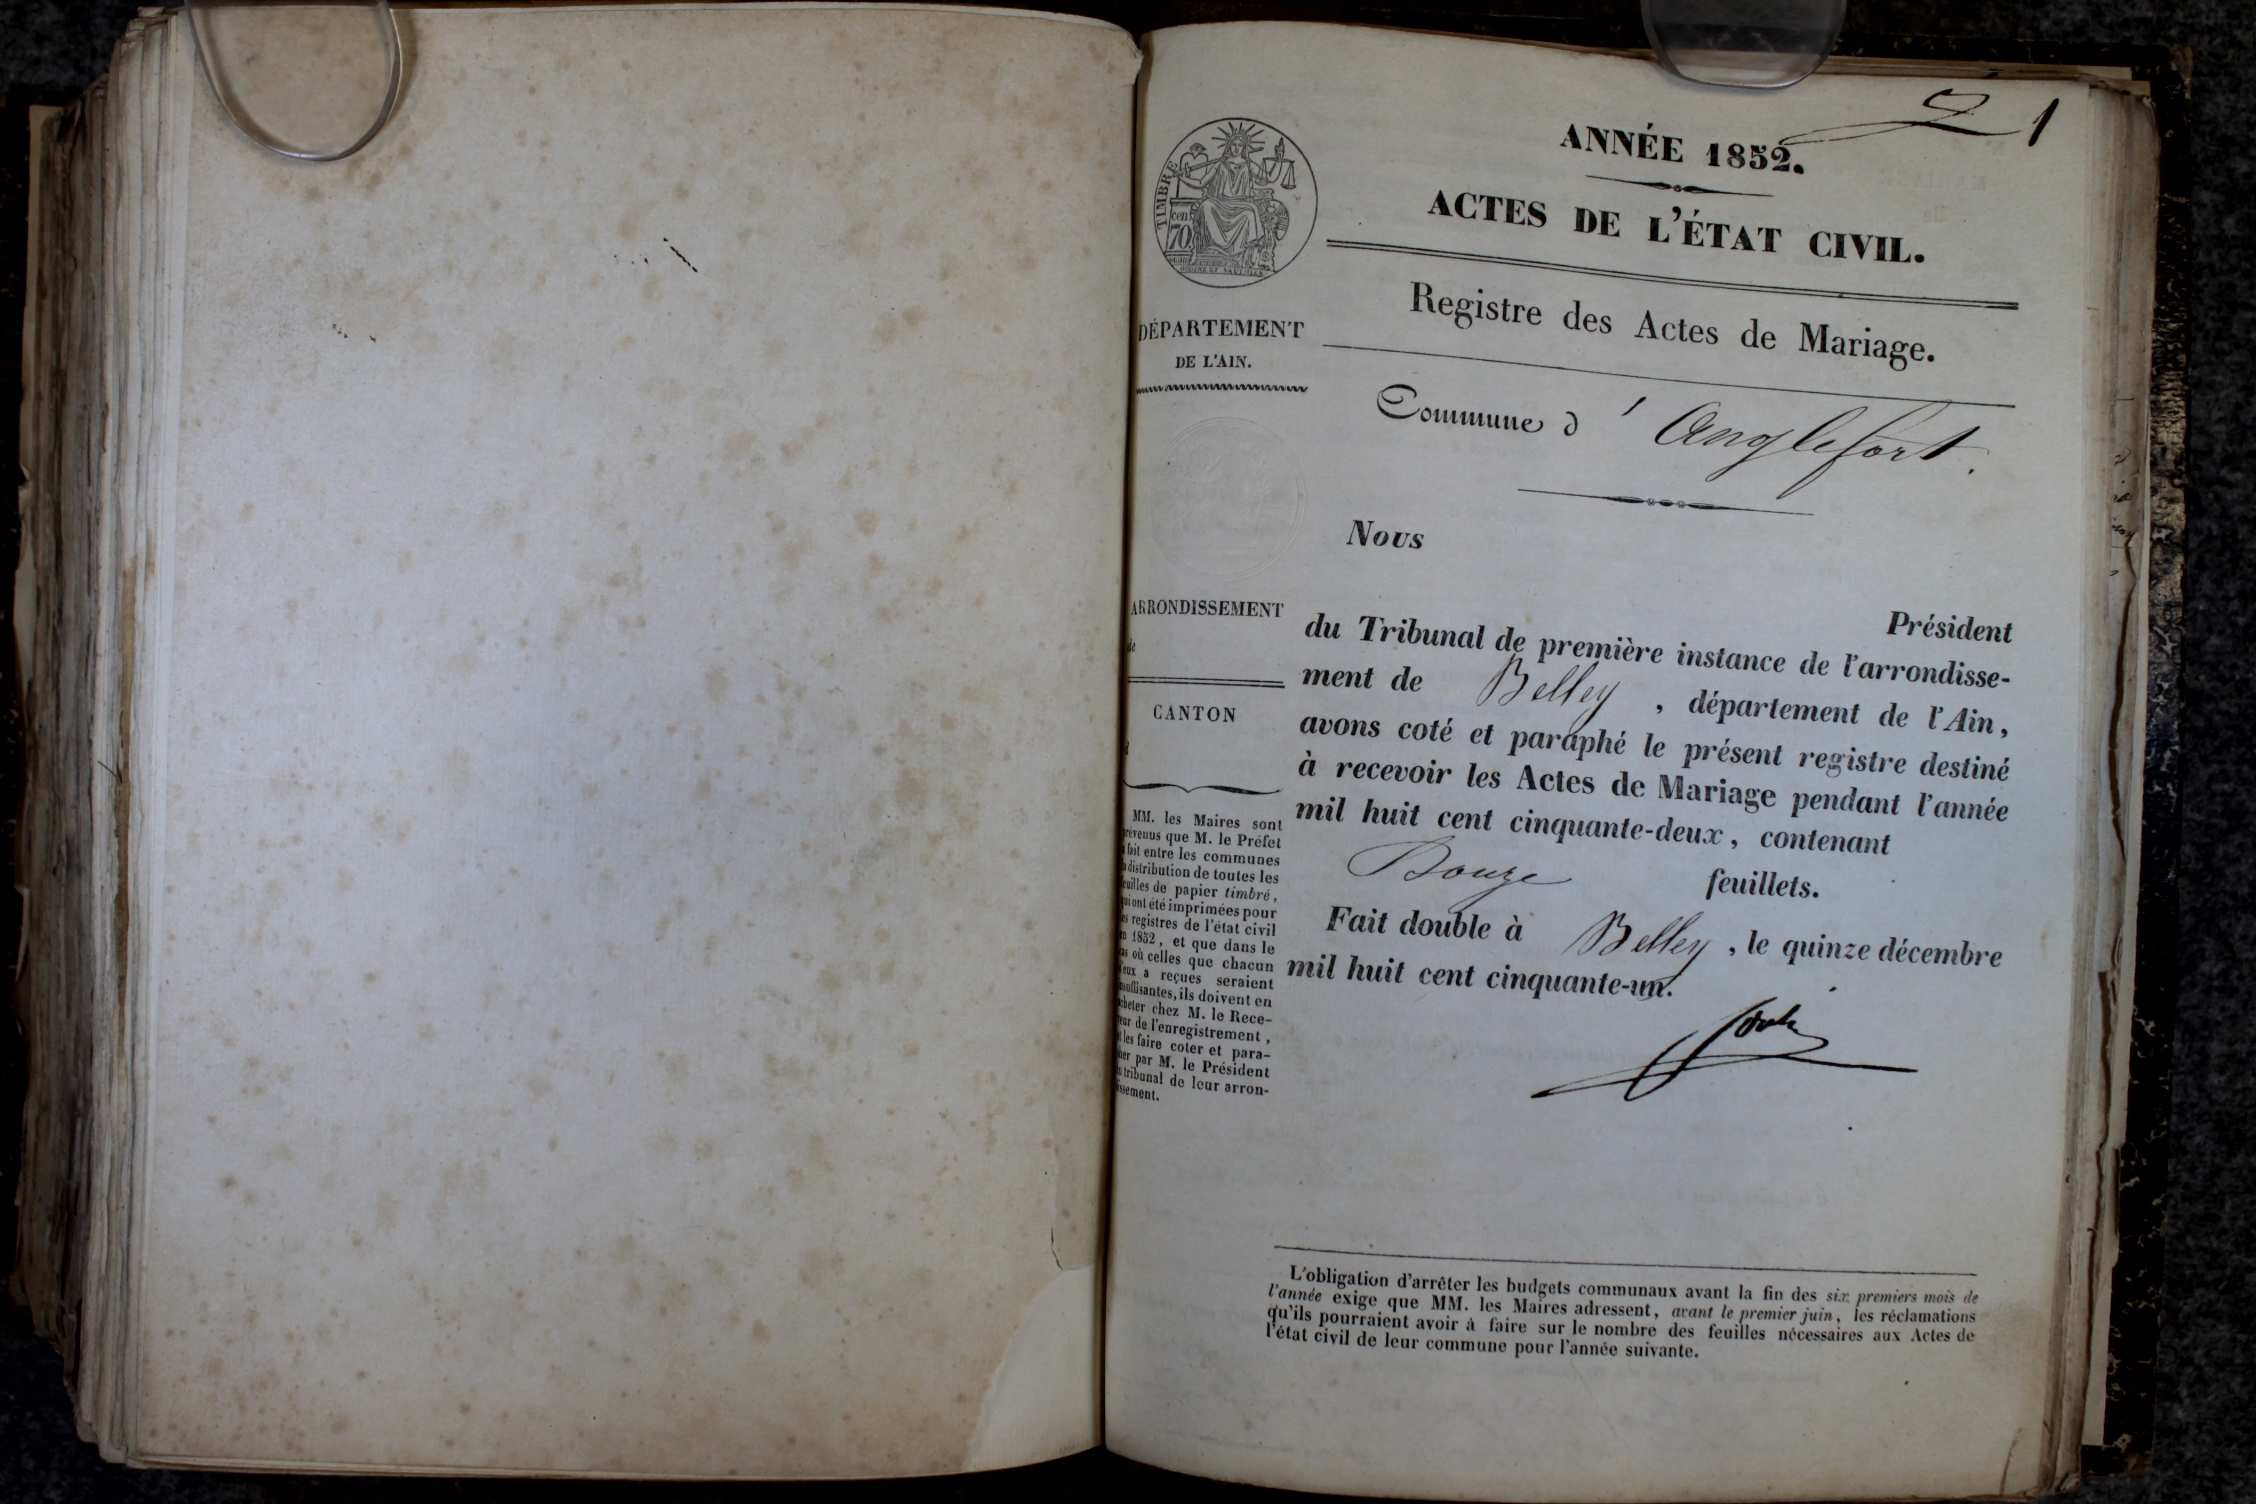 1
ANNÉE 1852.
ACTES DE L'ÉTAT CIVIL.
Registre des Actes de Mariage.
Commune d' Anglefort.
TIMBRE
cen
70
DÉPARTEMENT
DE L'AIN.
ARRONDISSEMENT
de
CANTON
d
MM. les Maires sont
prévenus que M. le Préfet
a fait entre les communes
la distribution de toutes les
feuilles de papier timbré,
qui ont été imprimées pour
les registres de l'état civil
en 1852, et que dans le
cas où celles que chacun
d'eux a reçues seraient
insuffisantes, ils doivent en
acheter chez M. le Rece-
veur de l'enregistrement,
et les faire coter et para-
pher par M. le Président
du tribunal de leur arron-
dissement.
Nous
Président
du Tribunal de première instance de l'arrondisse-
ment de Belley, département de l'Ain,
avons coté et paraphé le présent registre destiné
à recevoir les Actes de Mariage pendant l'année
mil huit cent cinquante-deux, contenant
Douze feuillets.
Fait double à Belley, le quinze décembre
mil huit cent cinquante-un.
L'obligation d'arrêter les budgets communaux avant la fin des six premiers mois de
l'année exige que MM. les Maires adressent, avant le premier juin, les réclamations
qu'ils pourraient avoir à faire sur le nombre des feuilles nécessaires aux Actes de
l'état civil de leur commune pour l'année suivante.